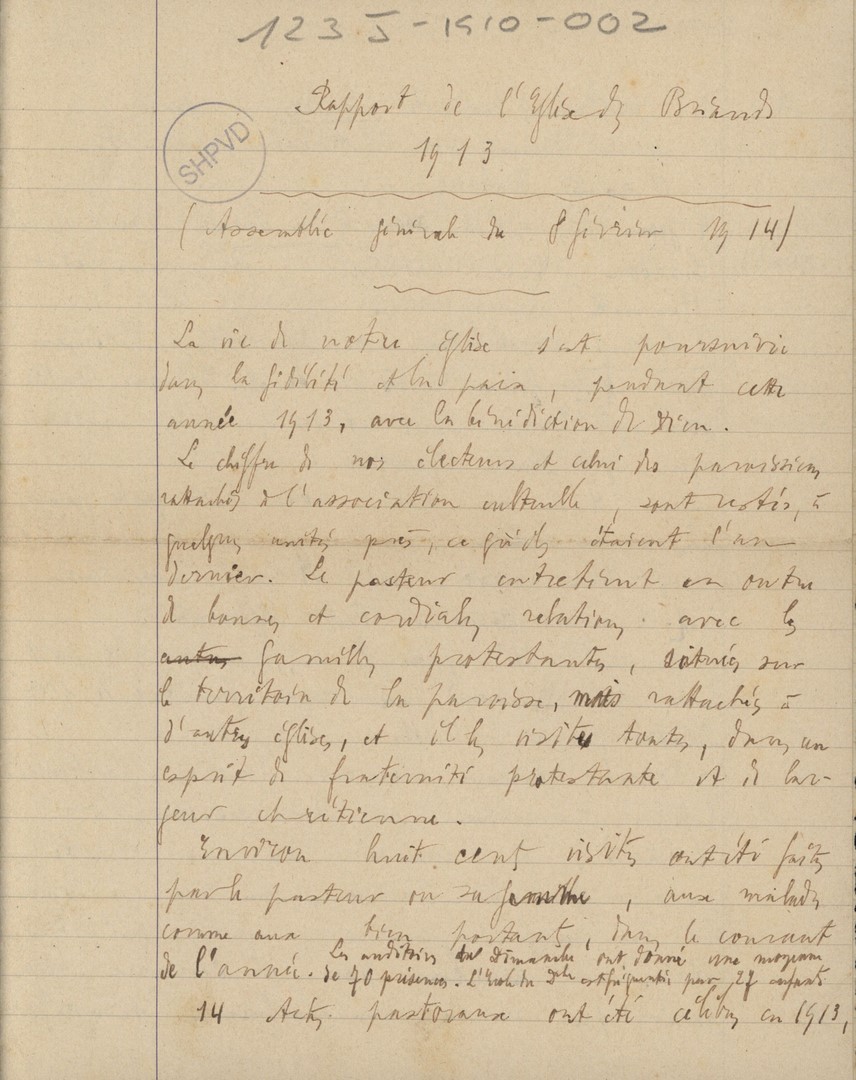 123 J-1910-002
Rapport de l'Eglise des Briands
1913
SHPVD
(Assemblée générale du 8 février 1914)
La vie de notre église s'est poursuivie
dans la fidélité et la paix, pendant cette
année 1913, avec la bénédiction de Dieu.
Le chiffre de nos électeurs et celui des paroissiens
rattachés à l'association cultuelle, sont restés, à
quelques unités près, ce qu'ils étaient l'an
dernier. Le pasteur entretient en outre
de bonnes et cordiales relations avec les
autres familles protestantes, situées sur
le territoire de la paroisse, mais rattachés à
d'autres églises, et il les visite toutes, dans un
esprit de fraternité protestante et de lar-
geur chrétienne.
Environ huit cents visites ont été faites
par le pasteur ou sa famille, aux malades
comme aux bien portants, dans le courant
de l'année. Les auditoires du Dimanche ont donné une moyenne
de 70 présences. L'Ecole du Dche est fréquentée par 27 enfants
14 Actes pastoraux ont été célébrés en 1913,